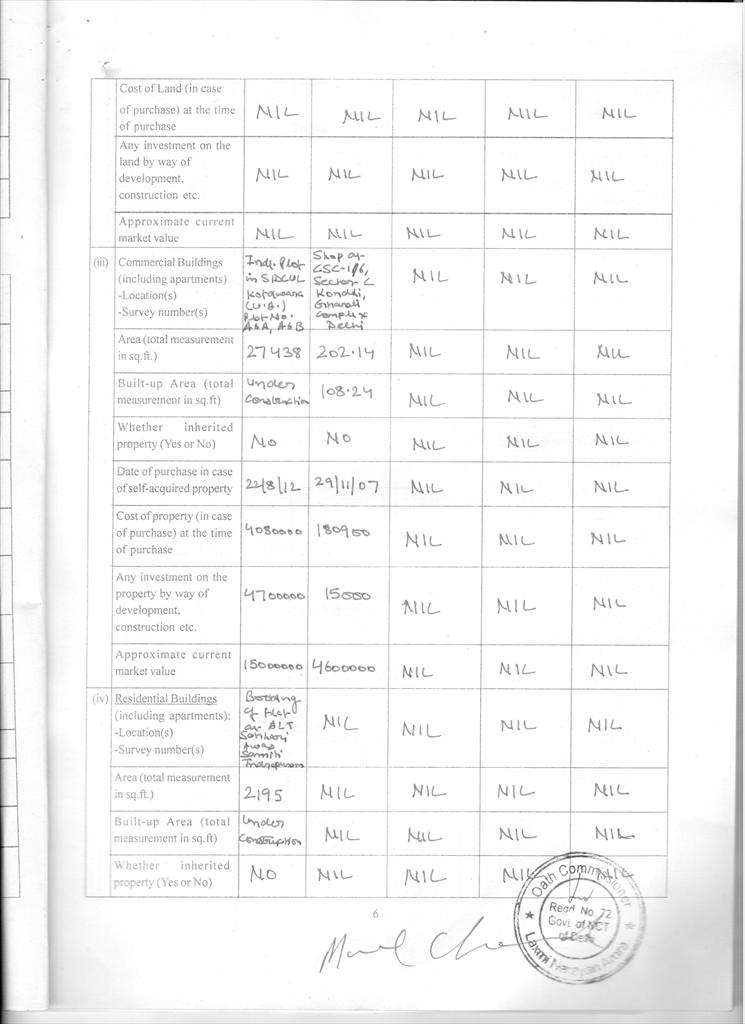 Cost of Land (in case
of purchase) at the time
of purchase
NIL NIL NIL NIL NIL
Any investment on the
land by way of
development,
construction etc.
NIL NIL NIL NIL NIL
Approximate current
market value
NIL NIL NIL NIL NIL
(iii) Commercial Buildings
(including apartments)
-Location(s)
-Survey number(s)
Indl. Plot
in SIDCUL
Kotdwara
(U.A.)
Plot No.
A6A, A6B
Shop at
CSC-1/6,
Sector C
Kondli,
Gharoli
Complex
Delhi
NIL NIL NIL
Area (total measurement
in sq.ft.)
27438 202.14 NIL NIL NIL
Built-up Area (total
measurement in sq.ft)
Under
Construction
108.24 NIL NIL NIL
Whether inherited
property (Yes or No)
No No NIL NIL NIL
Date of purchase in case
of self-acquired property
22/8/12 29/11/07 NIL NIL NIL
Cost of property (in case
of purchase) at the time
of purchase
4080000 180900 NIL NIL NIL
Any investment on the
property by way of
development,
construction etc.
4700000 15000 NIL NIL NIL
Approximate current
market value
15000000 4600000 NIL NIL NIL
(iv) Residential Buildings
(including apartments):
-Location(s)
-Survey number(s)
Booking
of flat
at ALT
Sahkari
Awas
Samiti
Indrapuram
NIL NIL NIL NIL
Area (total measurement
in sq.ft.)
2195 NIL NIL NIL NIL
Built-up Area (total
measurement in sq.ft)
Under
Construction
NIL NIL NIL NIL
Whether inherited
property (Yes or No)
NO NIL NIL NIL NIL
6
Oath Commissioner
Regd. No. 72
Govt. of NCT
of Delhi
Laxmi Narayan